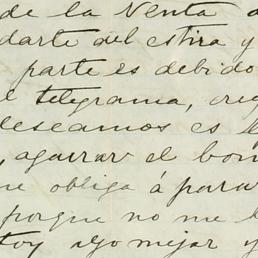 de la Venta
darte del estira y
parte es debido
telegrama,
deseamos es
, agarrar el
obliga á para
porque no me
toy algo mejor y